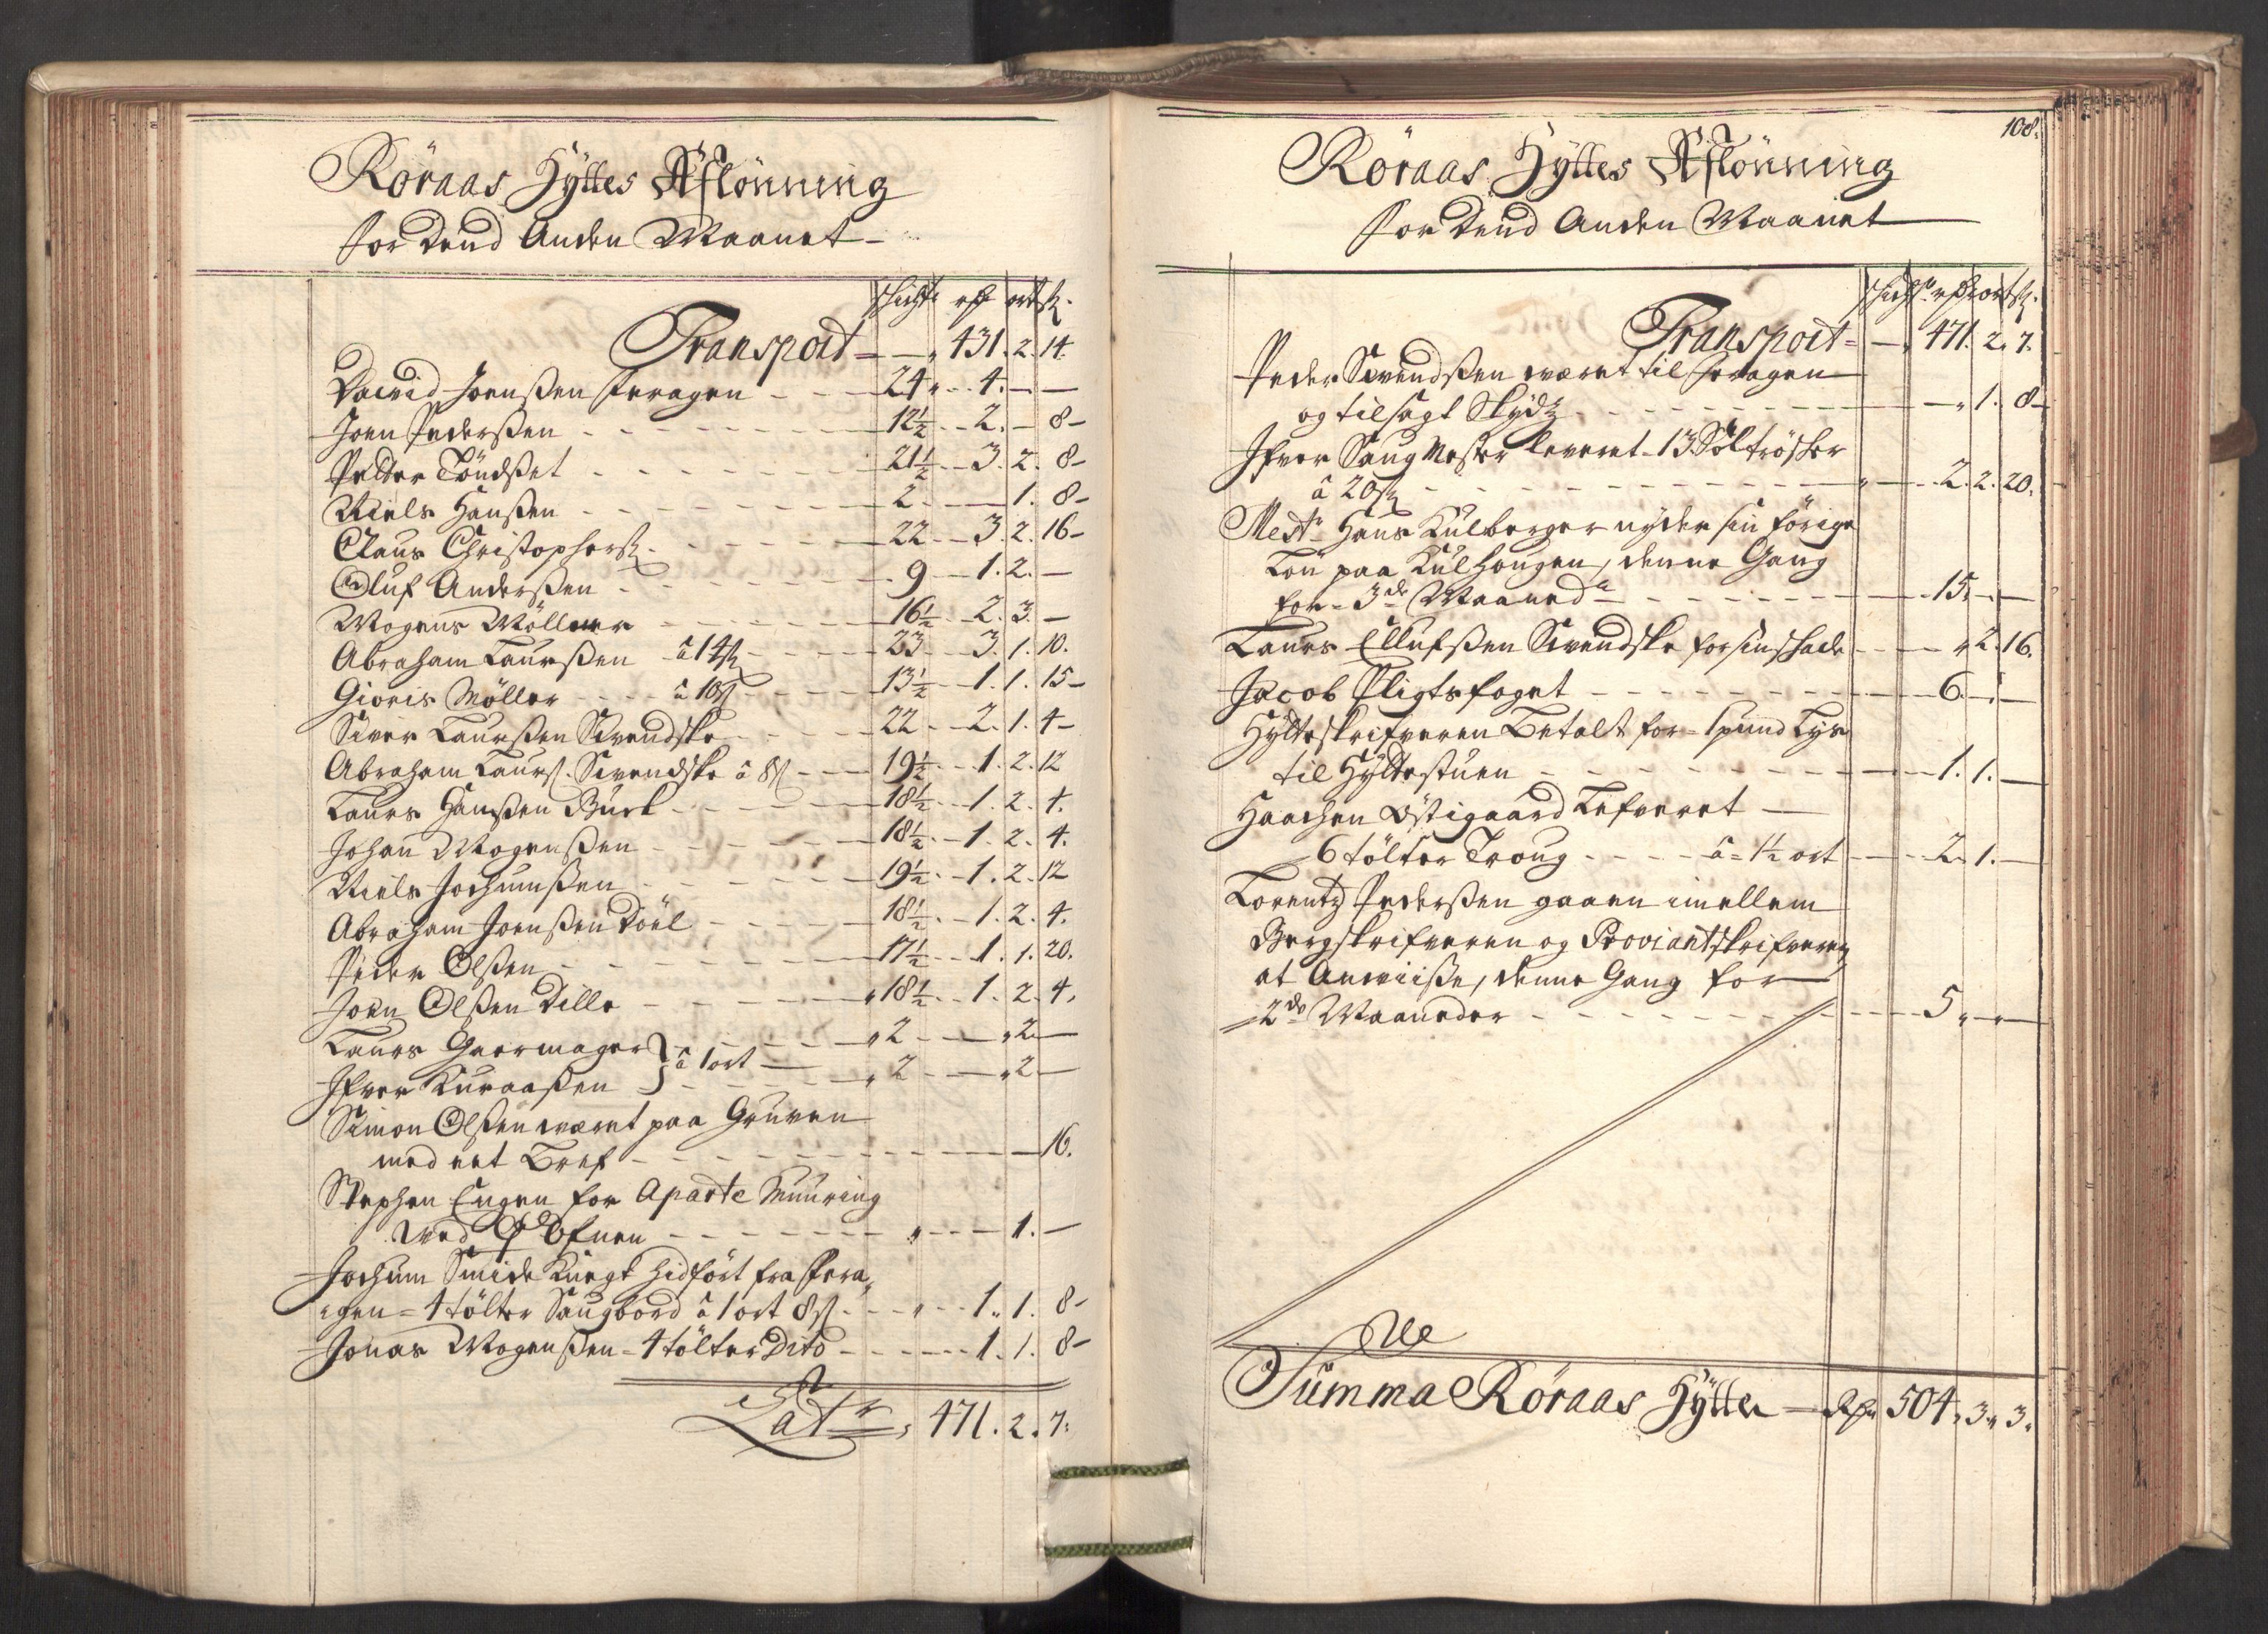 Röraas Hyttes Aflönning
for Dend Anden Maanet
schichtr rdr ort sk.
Transport 431. 2. 14.
David Joenßen feragen 24 4. — —
Joen Pederßen 12½ 2. — 8
Petter Töndßet 21½ 3. 2. 8
Niels Hanßen 2 — 1. 8
Claus Christophersz. 22 3. 2. 16
Oluf Anderßen 9 1. 2. —
Mogens Möller 16½ 2. 3. —
Abraham Laurßen â 14sz 23 3. 1. 10.
Gioris Möller â 10sz 13½ 1. 1. 15
Siver Laurßen Svendske 22 2. 1. 4
Abraham Laurs. Svendske â 8sz 19½ 1. 2. 12
Laurs Hanßen Buck 18½ 1. 2. 4.
Johan Mogenßen 18½ 1. 2. 4.
Niels Jochumßen 19½ 1. 2. 12
Abraham Joenßen Döel 18½ 1. 2. 4.
Peder Olßen 17½ 1. 1. 20.
Joen Olßen Dille 18½ 1. 2. 4.
Laurs Gaarmager 2 — 2 —
â 1 ort
Ifver Kuraaßen 2 — 2 —
Simon Olßen været paa Gruven
med eet Bref — 16.
Stephen Engen for Aparte Muuring
ved ♀ Ofnen 1. —
Jochum Smide Knegt hidfört fra fera„
„gen = 4 tölter Saugbord â 1 ort 8sz 1. 1. 8
Jonas Mogenßen = 4 tölter Dito 1. 1. 8
Latr 471. 2. 7.
108.
Röraas Hyttes Aflönning
for Dend Anden Maanet
schichtr rdr ort sk.
Transport 471. 2. 7.
Peder Svendßen været til feragen
og tilsagt Skydz — 1. 8
Ifver Saug Mester leveret 13 Söltrösker
â 20sz 2. 2. 20.
Mestr Hans Kulberger nyder sin förige
Lön paa Kulhougen, denne Gang
for 3de Maaneder 15. — —
Laurs Ellufßen Svendske for sin schade 2. 16.
Jacob Pligtsfoget 6. — —
Hytteskrifveren Betalt for 1 pund Lys
til Hyttestuen 1. 1. —
Haachen Östigaard Lefveret
6 tölter Troug â 1½ ort 2. 1. —
Lorentz Pederßen gaaen imellem
Bergskrifveren og Proviantskrifveren
at Anviiße, denne Gang for
2de Maaneder 5 — —
Summa Röraas Hytte Rdr 504. 3. 3.